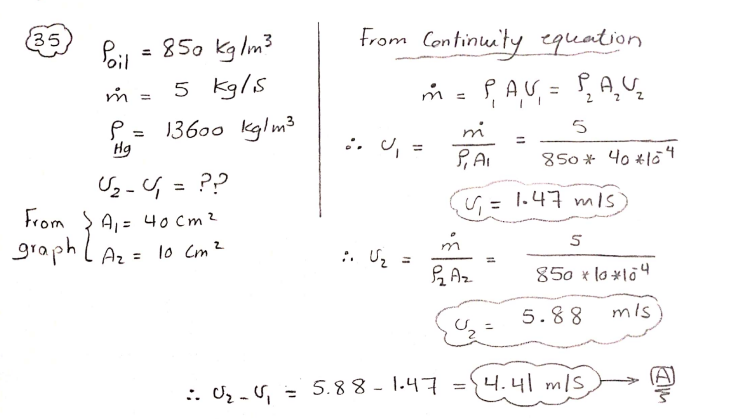 35
ρoil = 850 kg/m³
ṁ = 5 kg/s
ρHg = 13600 kg/m³
υ₂ - υ₁ = ??
From graph { A₁ = 40 cm²
A₂ = 10 cm²
From Continuity equation
ṁ = ρ₁ A₁ υ₁ = ρ₂ A₂ υ₂
∴ υ₁ = ṁ / ρ₁A₁ = 5 / 850 * 40 * 10⁻⁴
υ₁ = 1.47 m/s
∴ υ₂ = ṁ / ρ₂A₂ = 5 / 850 * 10 * 10⁻⁴
υ₂ = 5.88 m/s
∴ υ₂ - υ₁ = 5.88 - 1.47 = 4.41 m/s → A